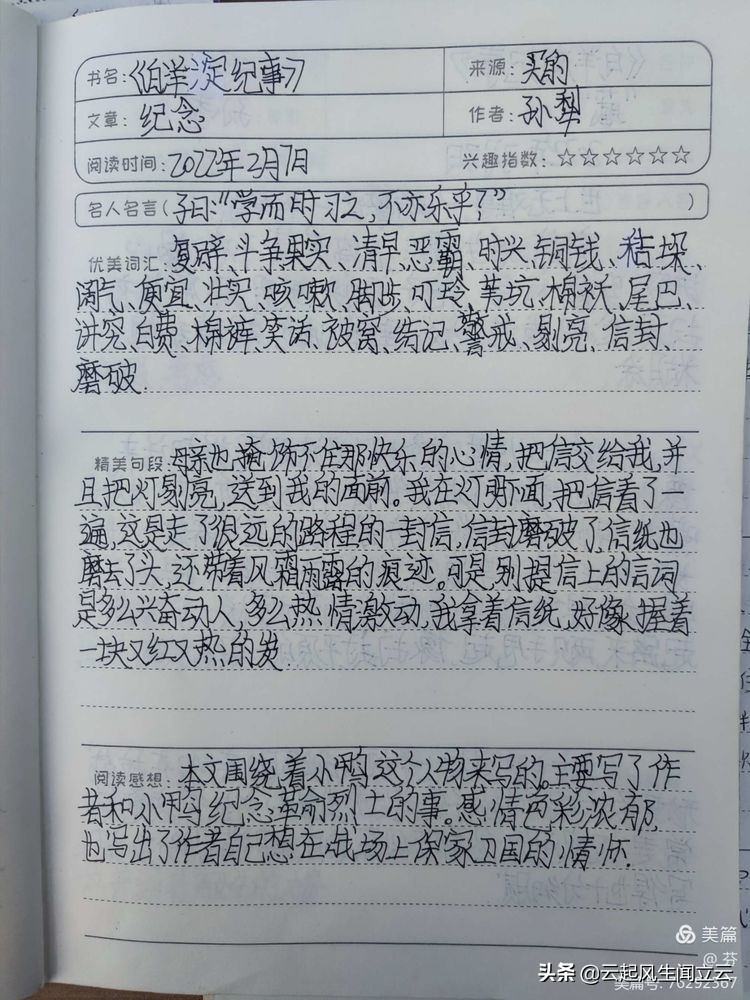 书名:《白洋淀纪事》 来源:买的
文章:纪念 作者:孙犁
阅读时间:2022年2月7日 兴趣指数:☆☆☆☆☆☆
名人名言(子曰:“学而时习之,不亦乐乎?”)
优美词汇:复辟、斗争果实、清早、恶霸、时兴、铜钱、秸垛、
阔气、便宜、壮实、咳嗽、脚步、叮玲、苇坑、棉袄、尾巴、
讲究、白费、棉裤、笑话、被窝、结记、警戒、剔亮、信封、
磨破.
精美句段:母亲也掩饰不住那快乐的心情,把信交给我,并
且把灯剔亮,送到我的面前。我在灯下面,把信看了一
遍,这是走了很远的路程的一封信,信封磨破了,信纸也
磨去了头,还带着风霜雨露的痕迹。可是,别提信上的言词
是多么兴奋动人,多么热情激动,我拿着信纸,好像握着
一块又红又热的炭.
阅读感想:本文围绕着小鸭这个人物来写的。主要写了作
者和小鸭纪念革命烈士的事。感情色彩浓郁,
也写出了作者自己想在战场上保家卫国的情怀.
美篇
@芬
头条 @云起风生闻立云
美篇号:76292367